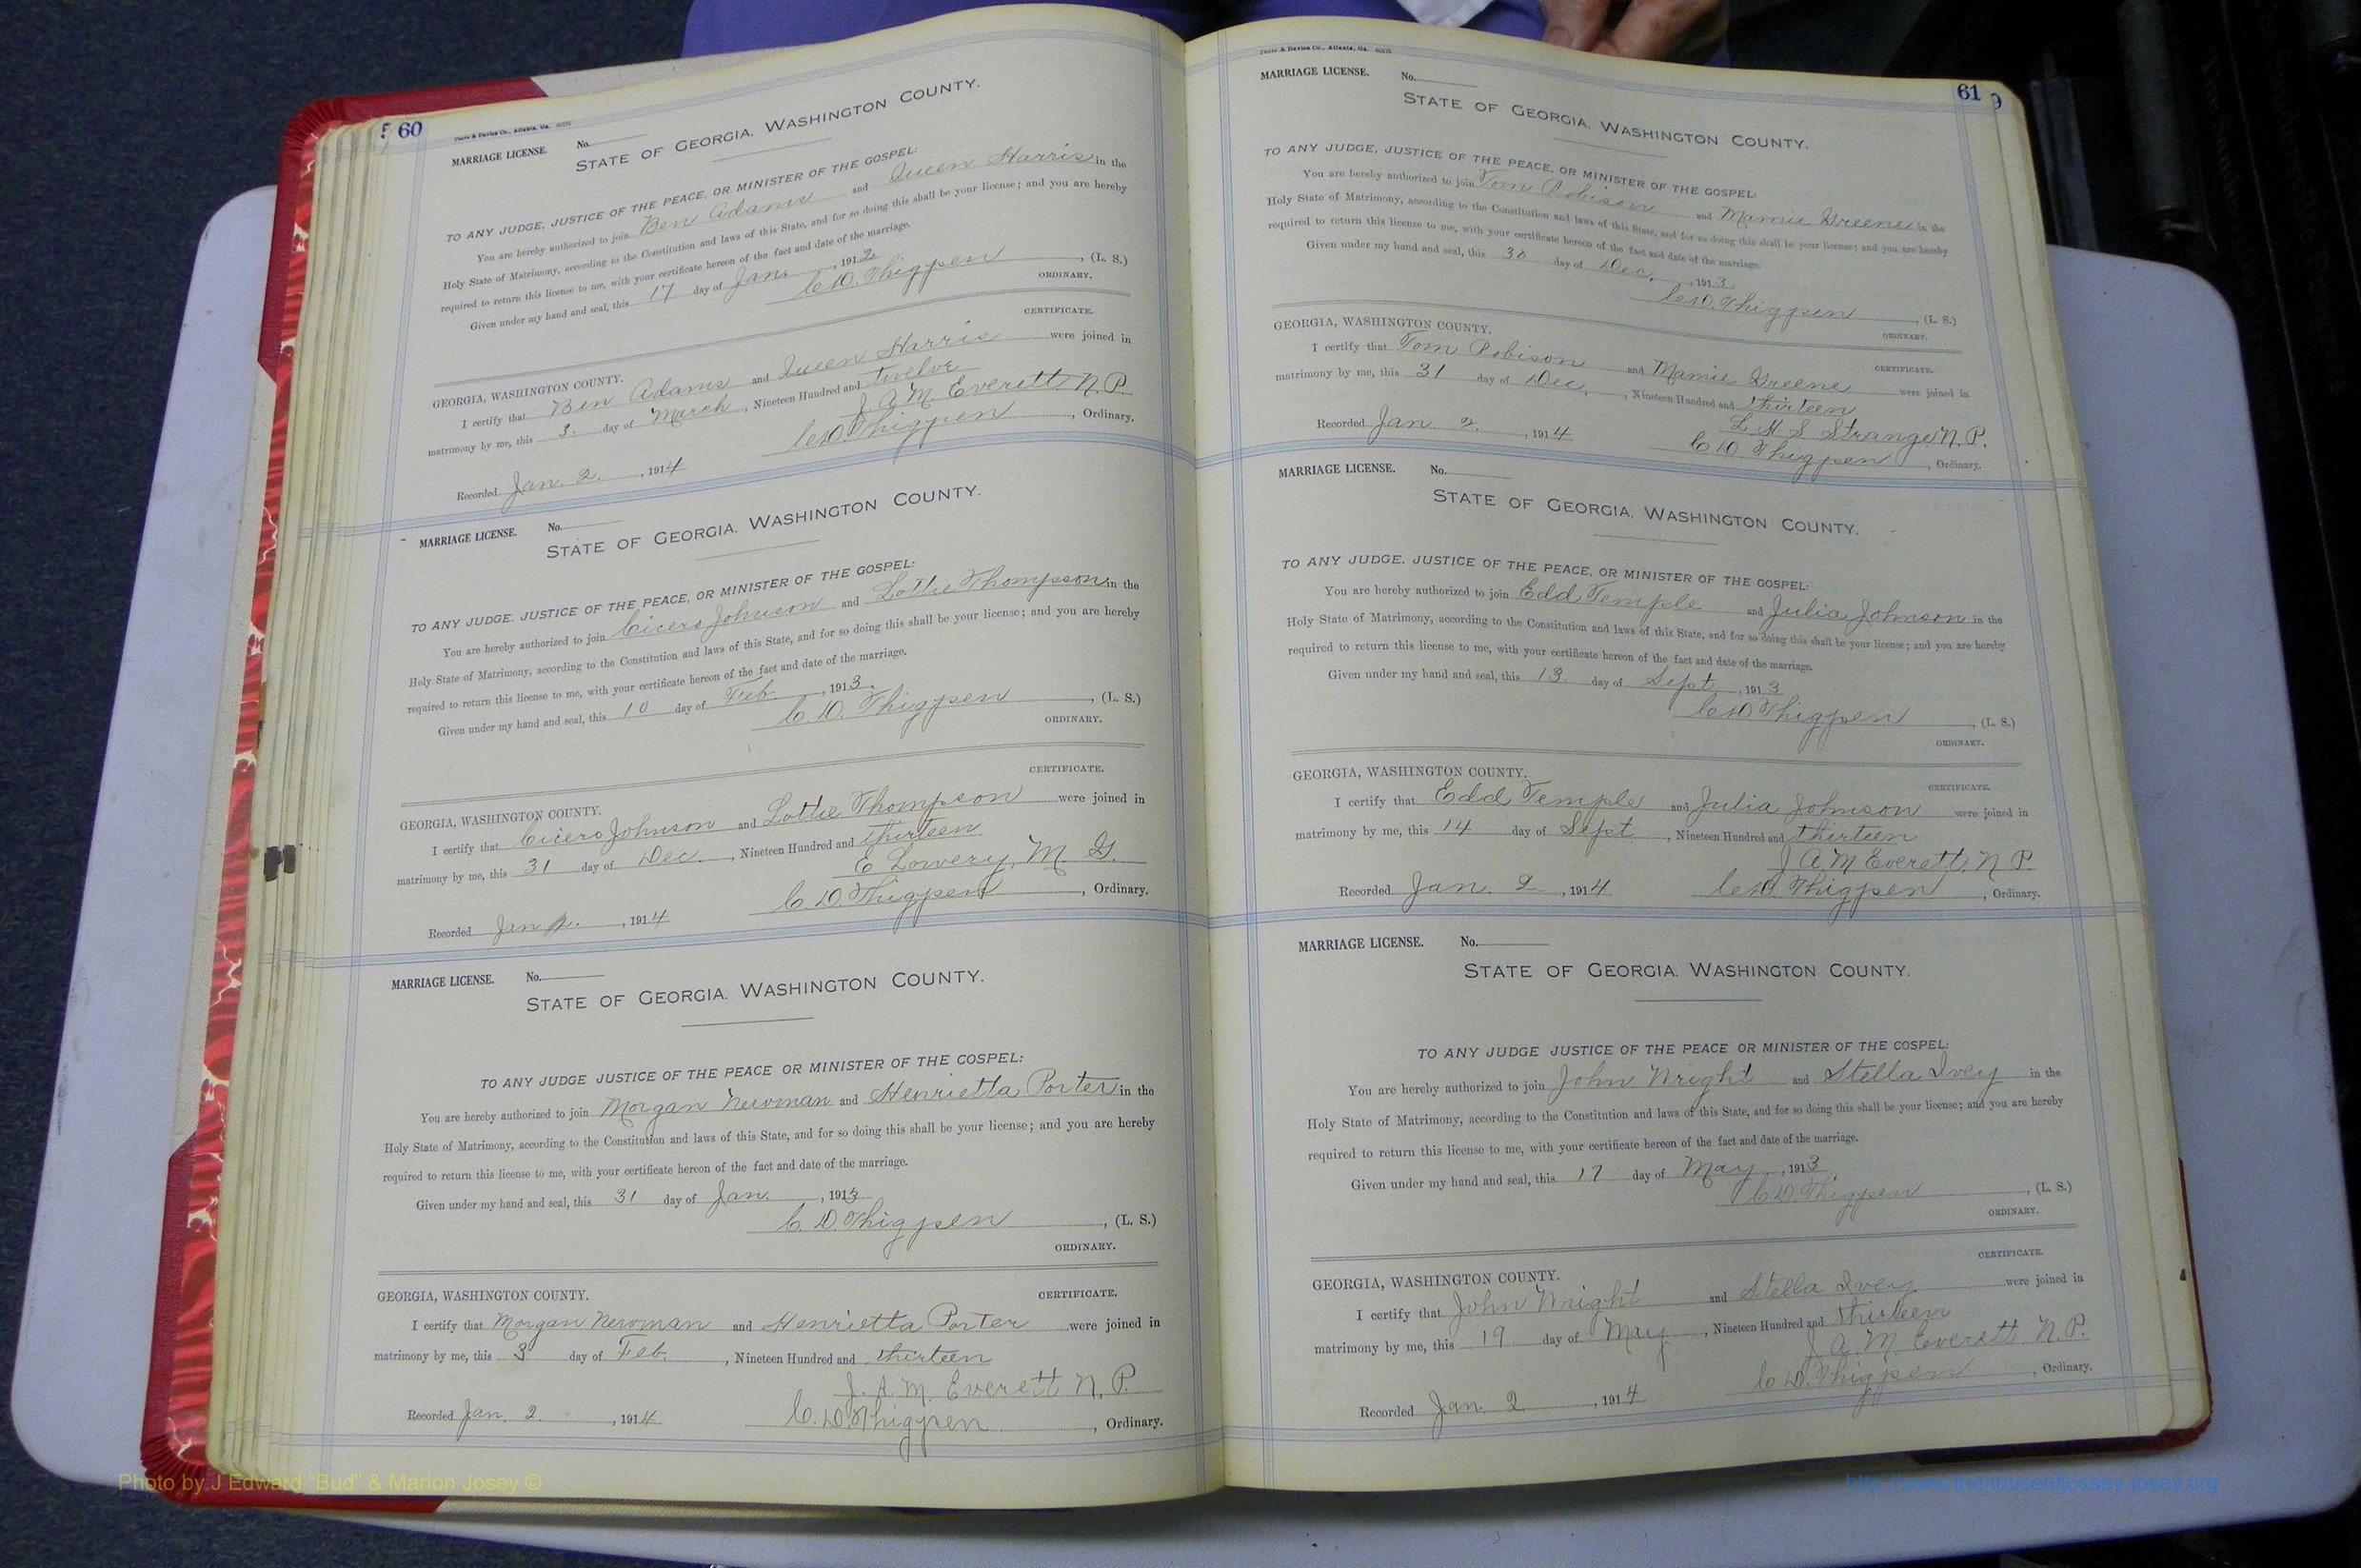 60
Foote & Davies Co., Atlanta, Ga.
MARRIAGE LICENSE. No.
STATE OF GEORGIA. WASHINGTON COUNTY.
TO ANY JUDGE, JUSTICE OF THE PEACE, OR MINISTER OF THE GOSPEL:
You are hereby authorized to join Ben Adams and Queen Harris in the
Holy State of Matrimony, according to the Constitution and laws of this State, and for so doing this shall be your license; and you are hereby
required to return this license to me, with your certificate hereon of the fact and date of the marriage.
Given under my hand and seal, this 17 day of Jan. , 1912
C. D. Thigpen , (L. S.)
ORDINARY.
CERTIFICATE.
GEORGIA, WASHINGTON COUNTY.
I certify that Ben Adams and Queen Harris were joined in
matrimony by me, this 3. day of March , Nineteen Hundred and twelve
J. A. M. Everett N.P.
Recorded Jan. 2. , 1914 C. D. Thigpen , Ordinary.
MARRIAGE LICENSE. No.
STATE OF GEORGIA. WASHINGTON COUNTY.
TO ANY JUDGE. JUSTICE OF THE PEACE, OR MINISTER OF THE GOSPEL:
You are hereby authorized to join Cicero Johnson and Lottie Thompson in the
Holy State of Matrimony, according to the Constitution and laws of this State, and for so doing this shall be your license; and you are hereby
required to return this license to me, with your certificate hereon of the fact and date of the marriage.
Given under my hand and seal, this 10 day of Feb. , 1913.
C. D. Thigpen , (L. S.)
ORDINARY.
CERTIFICATE.
GEORGIA, WASHINGTON COUNTY.
I certify that Cicero Johnson and Lottie Thompson were joined in
matrimony by me, this 31 day of Dec. , Nineteen Hundred and thirteen
E Lowery, M. G.
Recorded Jan 2. , 1914 C. D. Thigpen , Ordinary.
MARRIAGE LICENSE. No.
STATE OF GEORGIA. WASHINGTON COUNTY.
TO ANY JUDGE JUSTICE OF THE PEACE OR MINISTER OF THE GOSPEL:
You are hereby authorized to join Morgan Newman and Henrietta Porter in the
Holy State of Matrimony, according to the Constitution and laws of this State, and for so doing this shall be your license; and you are hereby
required to return this license to me, with your certificate hereon of the fact and date of the marriage.
Given under my hand and seal, this 31 day of Jan. , 1913
C. D. Thigpen , (L. S.)
ORDINARY.
GEORGIA, WASHINGTON COUNTY. CERTIFICATE.
I certify that Morgan Newman and Henrietta Porter were joined in
matrimony by me, this 3 day of Feb. , Nineteen Hundred and thirteen
J. A. M. Everett N. P.
Recorded Jan. 2. , 1914 C. D. Thigpen , Ordinary.
61
Foote & Davies Co., Atlanta, Ga.
MARRIAGE LICENSE. No.
STATE OF GEORGIA. WASHINGTON COUNTY.
TO ANY JUDGE, JUSTICE OF THE PEACE, OR MINISTER OF THE GOSPEL:
You are hereby authorized to join Tom Robison and Mamie Greene in the
Holy State of Matrimony, according to the Constitution and laws of this State, and for so doing this shall be your license; and you are hereby
required to return this license to me, with your certificate hereon of the fact and date of the marriage.
Given under my hand and seal, this day of Dec. , 1913
C. D. Thigpen , (L. S.)
ORDINARY.
GEORGIA, WASHINGTON COUNTY. CERTIFICATE.
I certify that Tom Robison and Mamie Greene were joined in
matrimony by me, this 31 day of Dec. , Nineteen Hundred and thirteen
L H S Strange N. P.
Recorded Jan. 2. , 1914 C. D. Thigpen , Ordinary.
MARRIAGE LICENSE. No.
STATE OF GEORGIA. WASHINGTON COUNTY.
TO ANY JUDGE. JUSTICE OF THE PEACE, OR MINISTER OF THE GOSPEL:
You are hereby authorized to join Edd Temple and Julia Johnson in the
Holy State of Matrimony, according to the Constitution and laws of this State, and for so doing this shall be your license; and you are hereby
required to return this license to me, with your certificate hereon of the fact and date of the marriage.
Given under my hand and seal, this 13. day of Sept , 1913
C. D. Thigpen , (L. S.)
ORDINARY.
GEORGIA, WASHINGTON COUNTY. CERTIFICATE.
I certify that Edd Temple and Julia Johnson were joined in
matrimony by me, this 14 day of Sept , Nineteen Hundred and thirteen
J A M Everett, N P.
Recorded Jan. 2 , 1914 C. D. Thigpen , Ordinary.
MARRIAGE LICENSE. No.
STATE OF GEORGIA. WASHINGTON COUNTY.
TO ANY JUDGE JUSTICE OF THE PEACE OR MINISTER OF THE GOSPEL:
You are hereby authorized to join John Wright and Stella Ivey in the
Holy State of Matrimony, according to the Constitution and laws of this State, and for so doing this shall be your license; and you are hereby
required to return this license to me, with your certificate hereon of the fact and date of the marriage.
Given under my hand and seal, this 17 day of May , 1913
C. D. Thigpen , (L. S.)
ORDINARY.
CERTIFICATE.
GEORGIA, WASHINGTON COUNTY.
I certify that John Wright and Stella Ivey were joined in
matrimony by me, this 19 day of May , Nineteen Hundred and thirteen
J. A. M. Everett N. P.
Recorded Jan. 2 , 1914 C. D. Thigpen , Ordinary.
Photo by J Edward "Bud" & Marion Josey ©
http://www.thehouseofjossey-josey.org